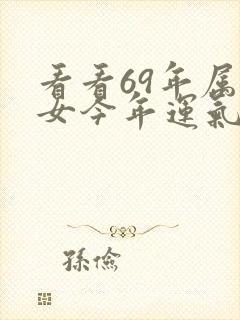 看看69年属
女今年運氣
孫儉